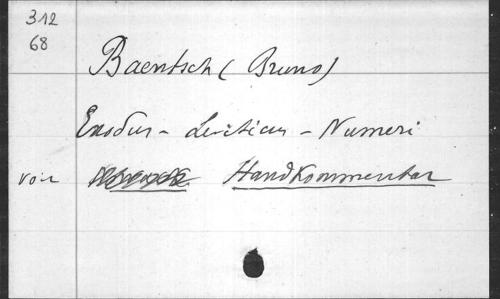 312
68
Baentsch (Bruno)
Exodus - Leviticus - Numeri
voir Handkommentar